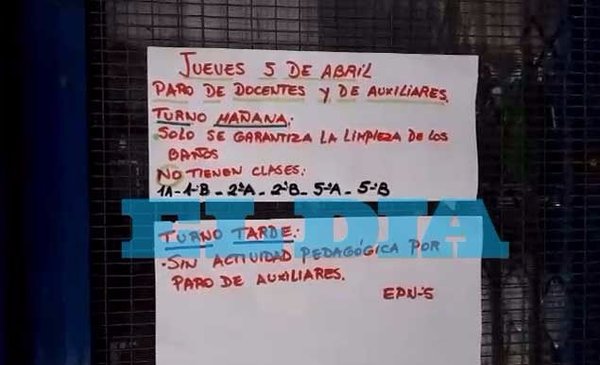 JUEVES 5 DE ABRIL
PARO DE DOCENTES Y DE AUXILIARES.
TURNO MAÑANA:
SOLO SE GARANTIZA LA LIMPIEZA DE LOS
BAÑOS
NO TIENEN CLASES:
1A - 1ºB - 2ºA - 2ºB - 5ºA - 5ºB
EL DIA
TURNO TARDE:
SIN ACTIVIDAD PEDAGÓGICA POR
PARO DE AUXILIARES.
EPNº5